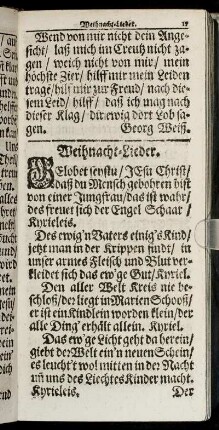 Weihnacht-Lieder. 17
Wend von mir nicht dein Ange-
sicht/ laß mich im Creutz nicht za-
gen / weich nicht von mir / mein
höchste Zier/ hilff mir mein Leiden
trage/ hilf mir zur Freud/ nach die-
sem Leid/ hilff / daß ich mag nach
dieser Klag / dir ewig dort Lob sa-
gen. Georg Weiß.
Weihnacht-Lieder.
Gelobet seystu / JEsu Christ/
daß du Mensch gebohren bist
von einer Jungfrau/das ist wahr/
des freuet sich der Engel Schaar /
Kyrieleis.
Des ewig'n Vaters einig's Kind/
jetzt man in der Krippen findt/ in
unser armes Fleisch und Blut ver-
kleidet sich das ew'ge Gut/ Kyriel.
Den aller Welt Kreis nie be-
schloß/der liegt in Marien Schooß/
er ist ein Kindlein worden klein/der
alle Ding erhält allein. Kyriel.
Das ew'ge Licht geht da herein/
giebt der Welt ein'n neuen Schein/
es leucht't wol mitten in der Nacht
uñ uns des Liechtes Kinder macht.
Kyrieleis. Der